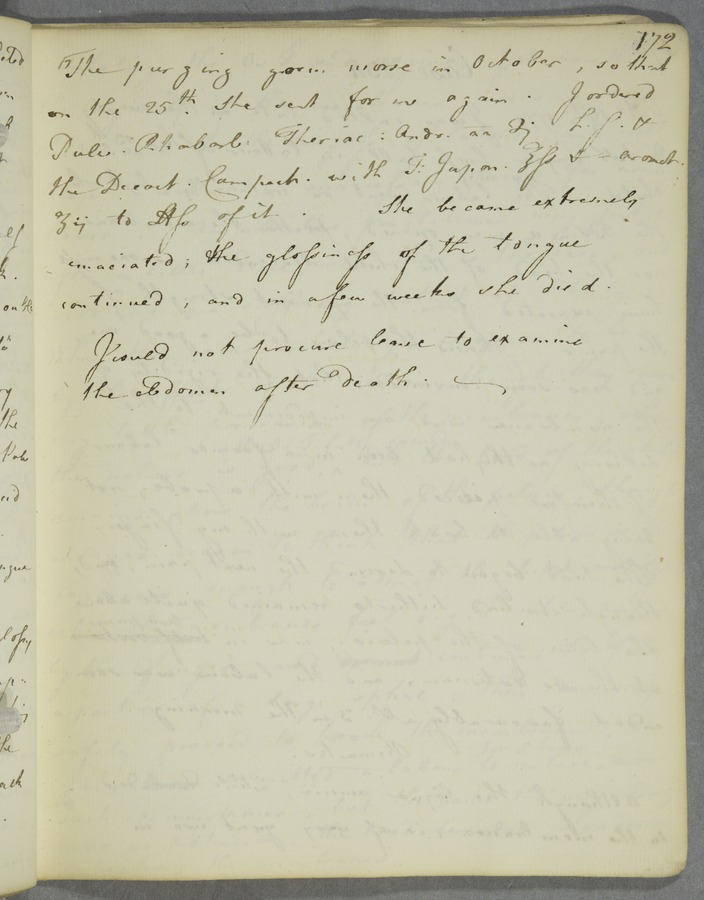 172
The purging grow worse in October, so that
on the 25th. She sent for me again. I ordered
Pulv. Rhabarb. Theriac: Andr. aa ʒj h. s. &
the Decoct. Campech. with T. Japon. ℥ss & - aromat.
ʒij to ℔ss of it. She became extremely
emaciated; the glossiness of the tongue
continued, and in a few weeks she died.
I could not procure leave to examine
the abdomen after death.